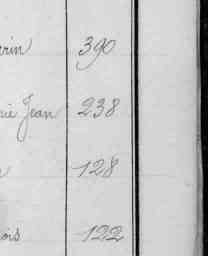 erin 390
rie Jean 238
128
ois 122